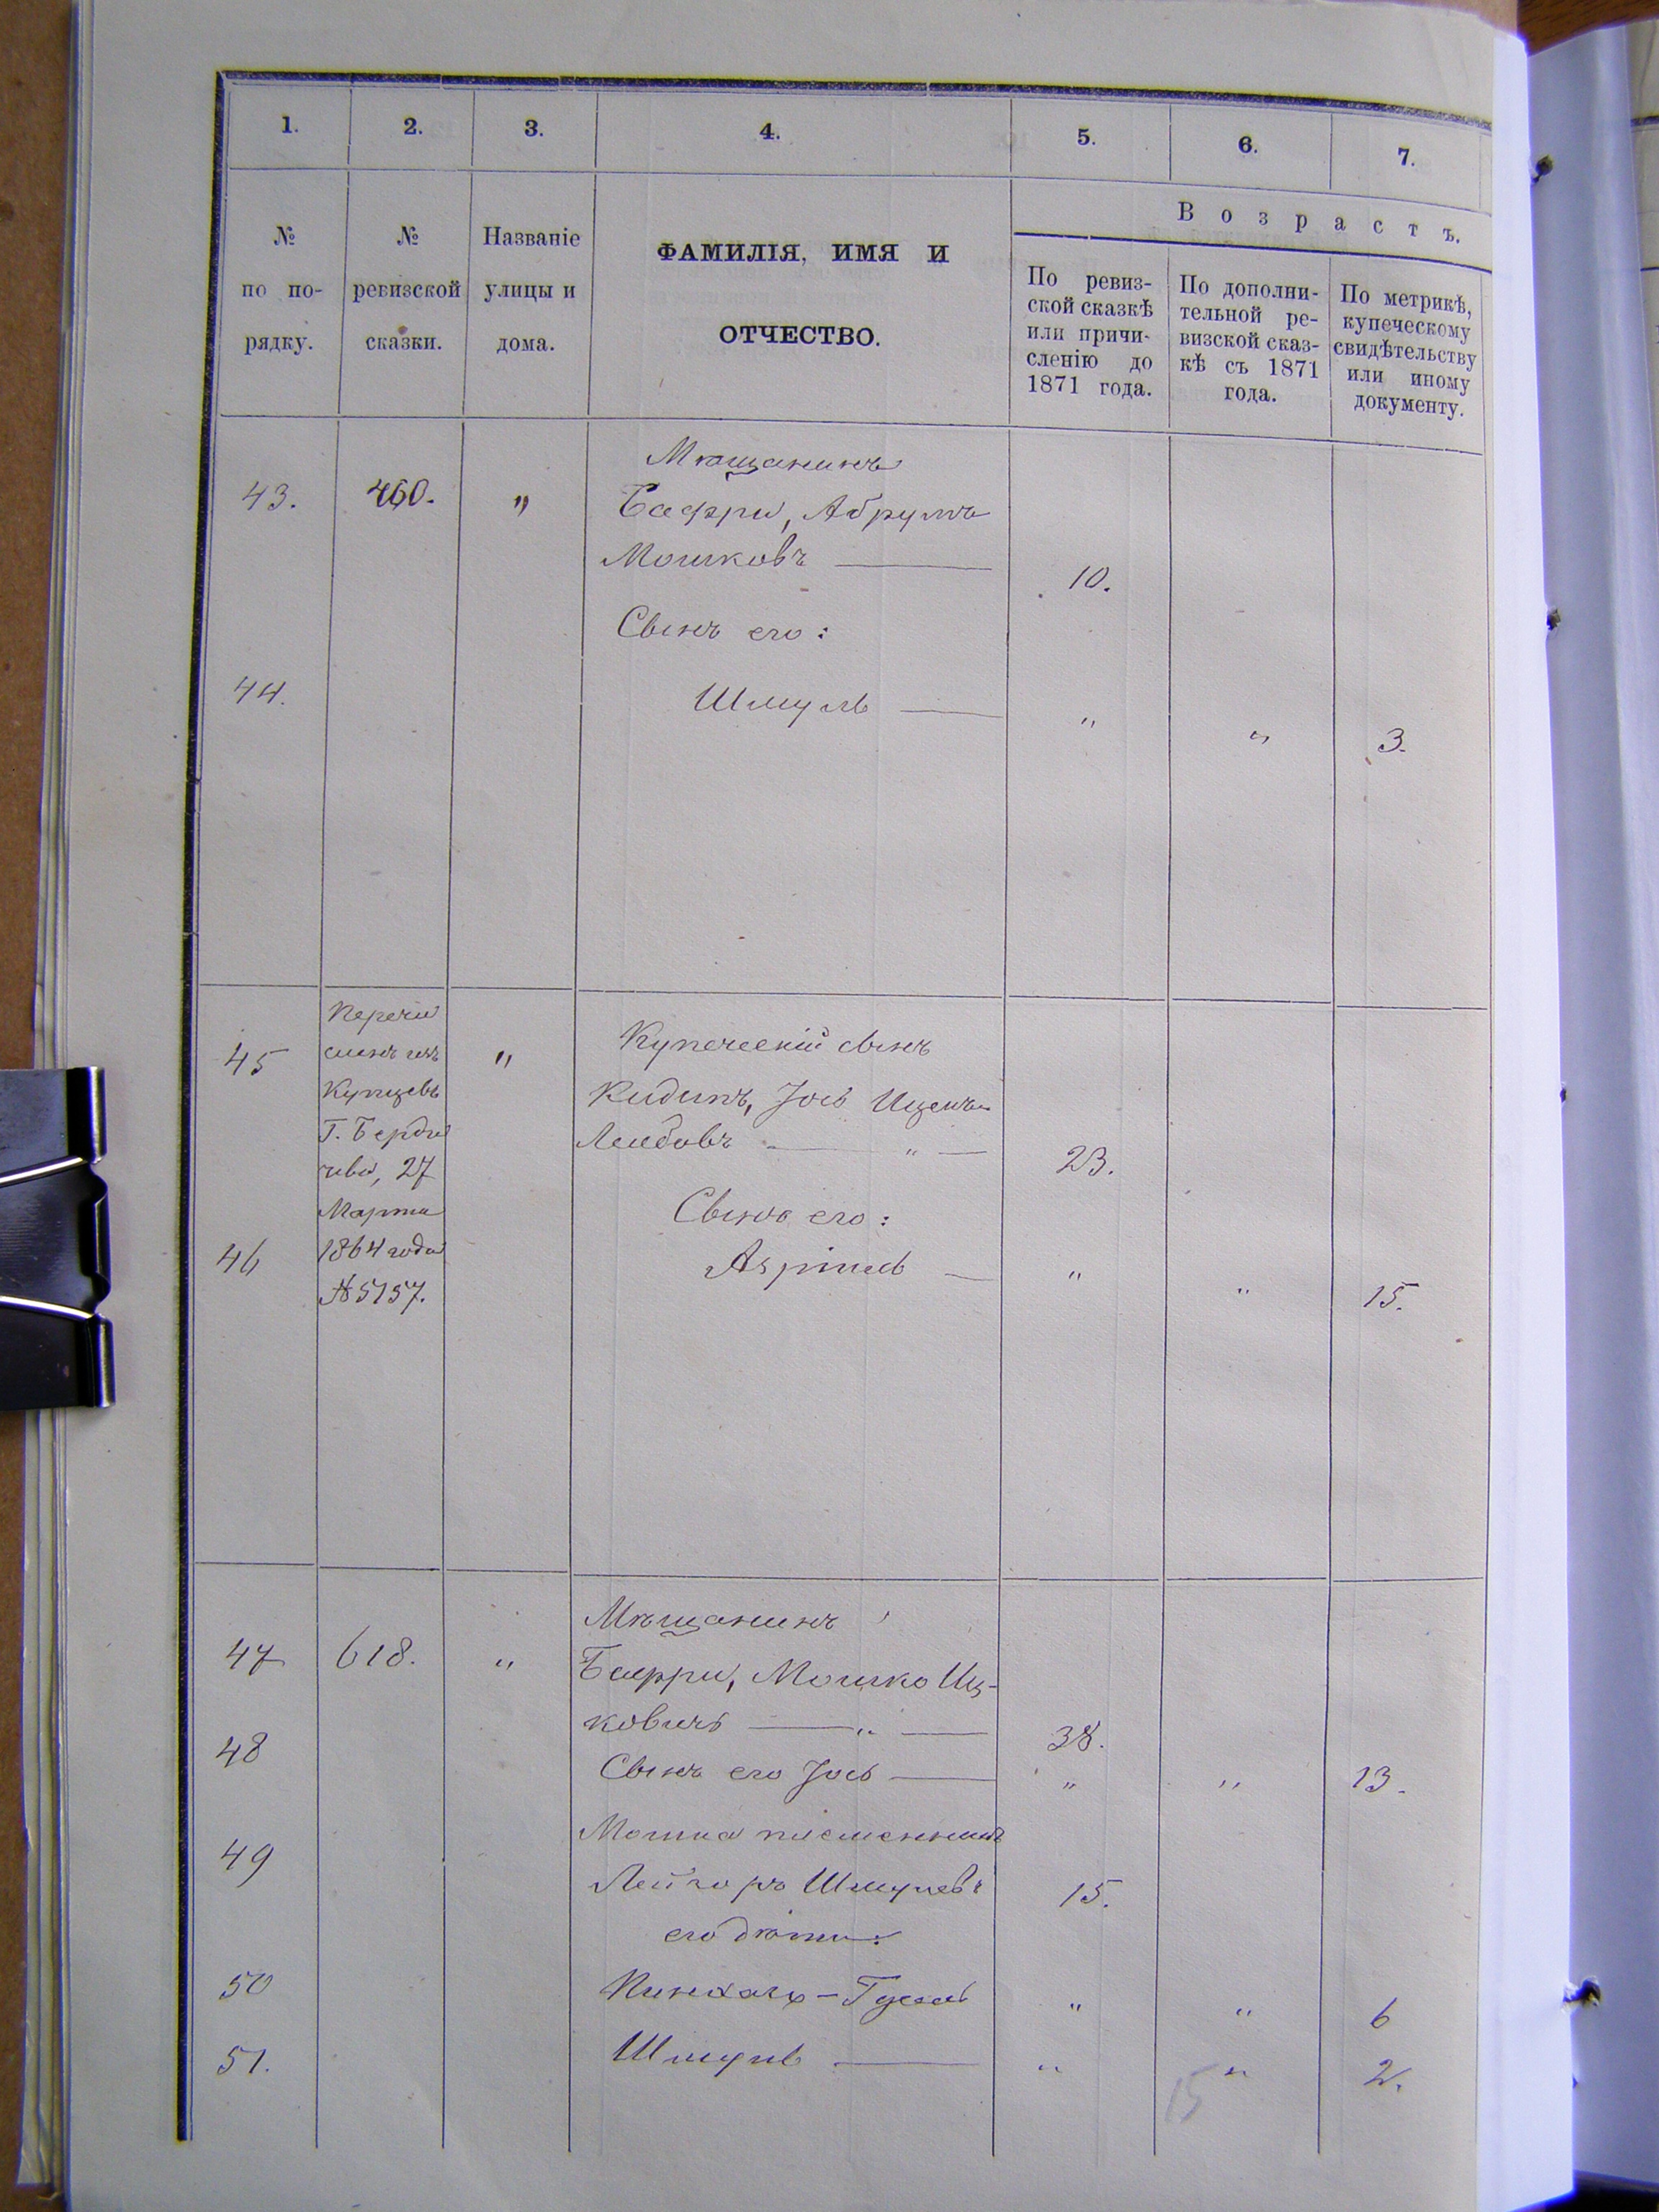 1. 2. 3. 4. 5. 6. 7.
№ по по-рядку.
№ ревизской сказки.
Названіе улицы и дома.
ФАМИЛІЯ, ИМЯ И
ОТЧЕСТВО.
Возрастъ.
По ревиз-
ской сказкѣ
или причи-
сленію до
1871 года.
По дополни-
тельной ре-
визской сказ-
кѣ съ 1871
года.
По метрикѣ,
купеческому
свидѣтельству
или иному
документу.
Мѣщанинъ
43. 460. „ Баффи, Абрумъ
Мошковъ — 10.
Сынъ его:
44. Шмуль — „ „ 3.
Перечи
сленъ изъ
Купцовъ
Г. Берди
чева, 27
Марта
1864 года
№ 5157.
45 „ Купеческій сынъ
Кидинъ, Іось Иценъ
Лейбовъ — „ — 23.
Сынъ его:
46 — „ „ 15.
Мѣщанинъ
47 618. „ Баффи, Мошко Иц-
ковичъ — „ — 38.
48 Сынъ его Іось — „ „ 13.
Мошка племенникъ
49 Лейзоръ Шмулевъ 15.
его дѣти:
50 Пинхасъ-Гусель „ „ 6
51. Шмуль — „ „ 2.
15